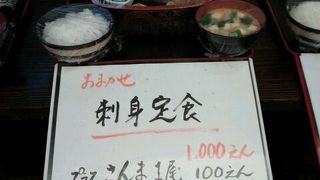 おまかせ
刺身定食
1.000えん
プラス さんま1尾 100えん